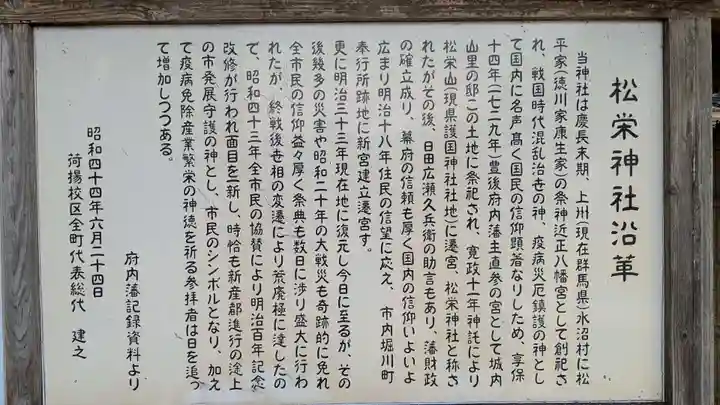 松栄神社沿革
当神社は慶長末期、上州(現在群馬県)水沼村に松
平家(徳川家康生家)の祭神近正八幡宮として創祀さ
れ、戦国時代混乱治寺の神、疫病災厄鎮護の神とし
て国内に名声髙く国民の信仰顕著なりしため、享保
十四年(一七二九年)豊後府内藩主直参の宮として城内
山里の邸この土地に祭祀され、寛政十一年神託により
松栄山(現県護国神社社地)に遷宮、松栄神社と称さ
れたがその後、日田広瀬久兵衛の助言もあり、藩財政
の確立成り、幕府の信頼も厚く国内の信仰いよいよ
広まり明治十八年住民の信望に応え、市内堀川町
奉行所跡地に新宮建立遷宮す。
更に明治三十三年現在地に復元し今日に至るが、その
後幾多の災害や昭和二十年の大戦災も奇跡的に免れ
全市民の信仰益々厚く祭典も数日に渉り盛大に行わ
れたが、終戦後世相の変遷により荒廃極に達したの
で、昭和四十三年全市民の協賛により明治百年記念
改修が行われ面目を一新し、時恰も新産都進行の途上
の市発展守護の神とし、市民のシンボルとなり、加え
て疫病免除産業繁栄の神徳を祈る参拝者は日を追っ
て増加しつつある。
府内藩記録資料より
昭和四十四年六月二十四日
荷揚校区全町代表総代 建之